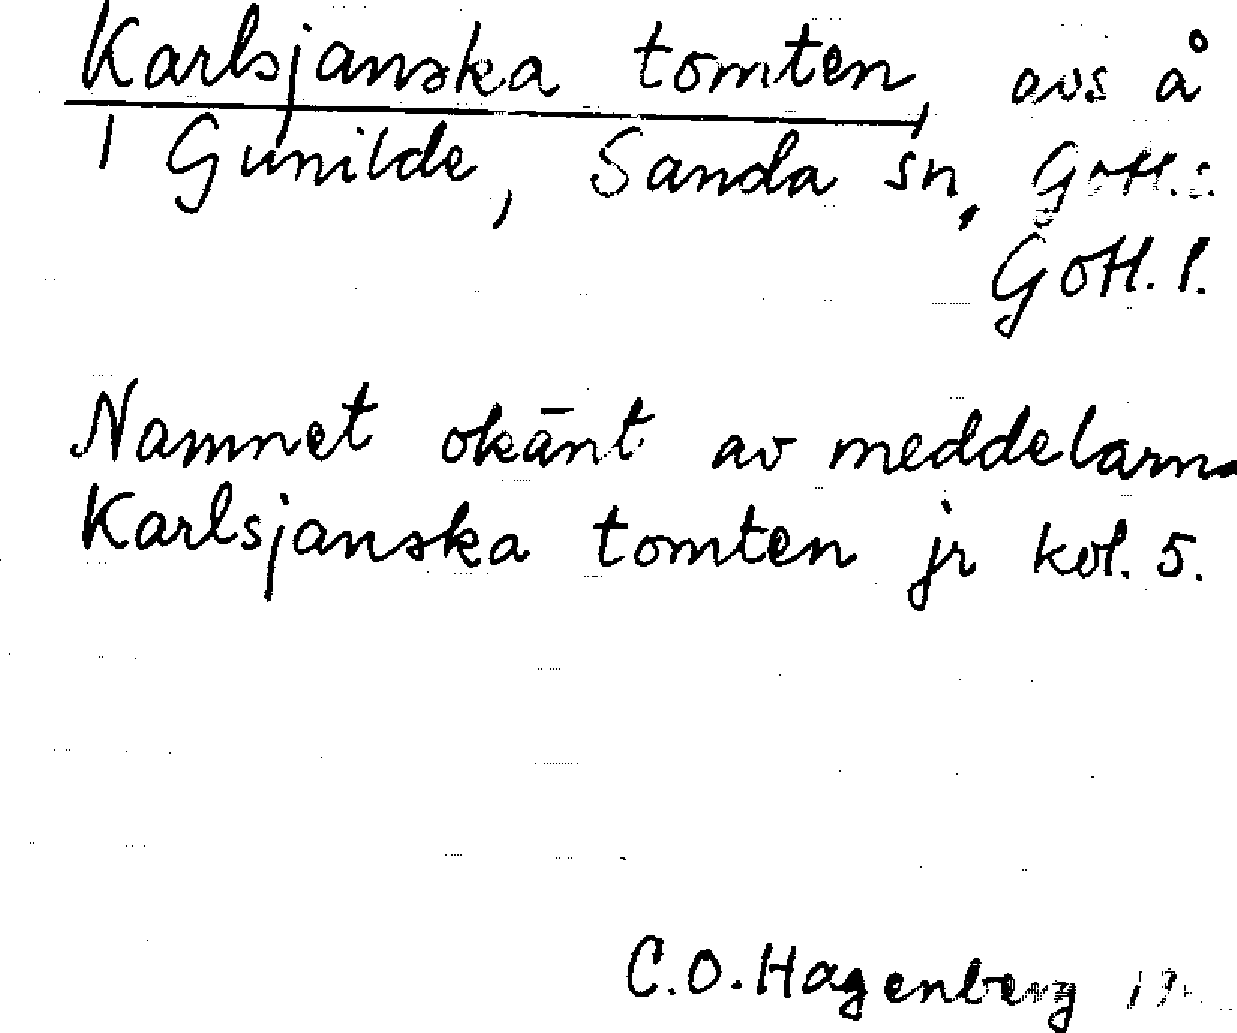 Karlsjanska tomten, avs å
1 Gunilde, Sanda sn, Gotl.s.
Gotl. l.
Namnet okänt av meddelarna
Karlsjanska tomten jr kol. 5.
C.O. Hagenberg